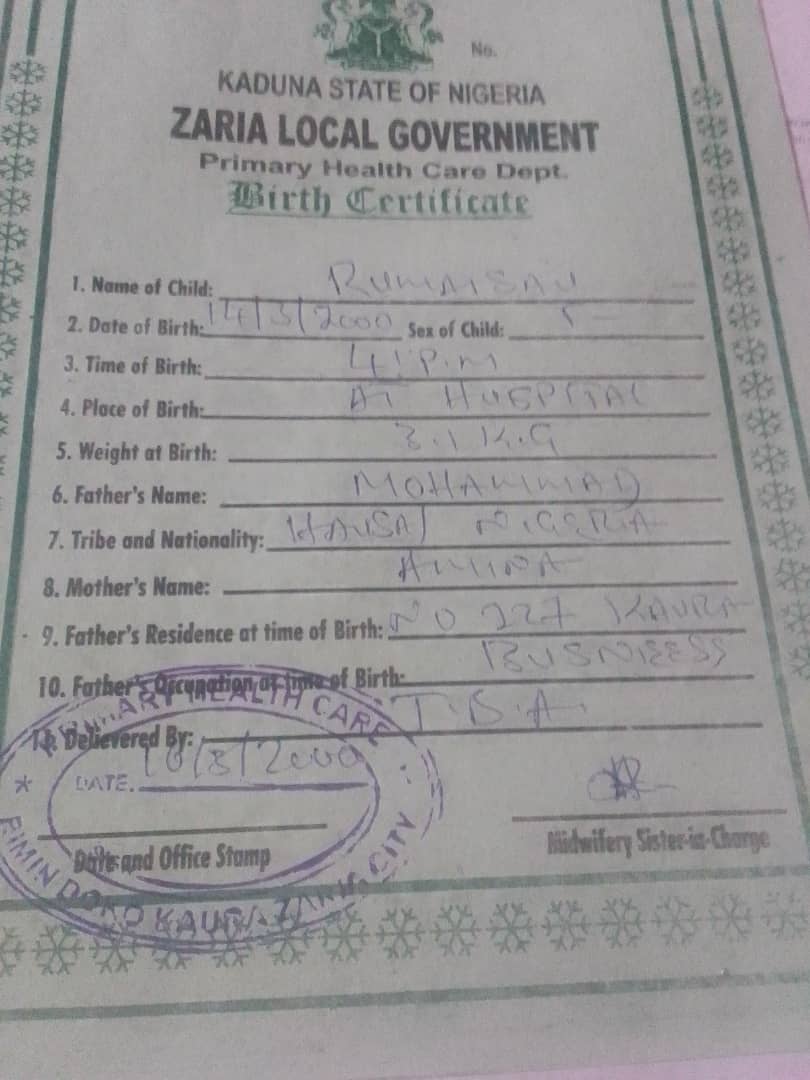 No.
KADUNA STATE OF NIGERIA
ZARIA LOCAL GOVERNMENT
Primary Health Care Dept.
Birth Certificate
1. Name of Child: RUMAISAU
2. Date of Birth: 14/3/2000 Sex of Child:
3. Time of Birth: 41 P.M
4. Place of Birth: AT HUSPITAL
5. Weight at Birth: 3.1 K.G
6. Father's Name: MOHAMMAD
7. Tribe and Nationality: HAUSA/ NIGERIA
8. Mother's Name: AMINA
9. Father's Residence at time of Birth: NO 227 KAURA
10. Father's Occupation at time of Birth: BUSNIESS
11. Delievered By: T.B.A.
PRIMARY HEALTH CARE
DATE. 16/3/2000
Date and Office Stamp
Midwifery Sister-in-Charge
RIMIN DOKO KAURA ZARIA CITY